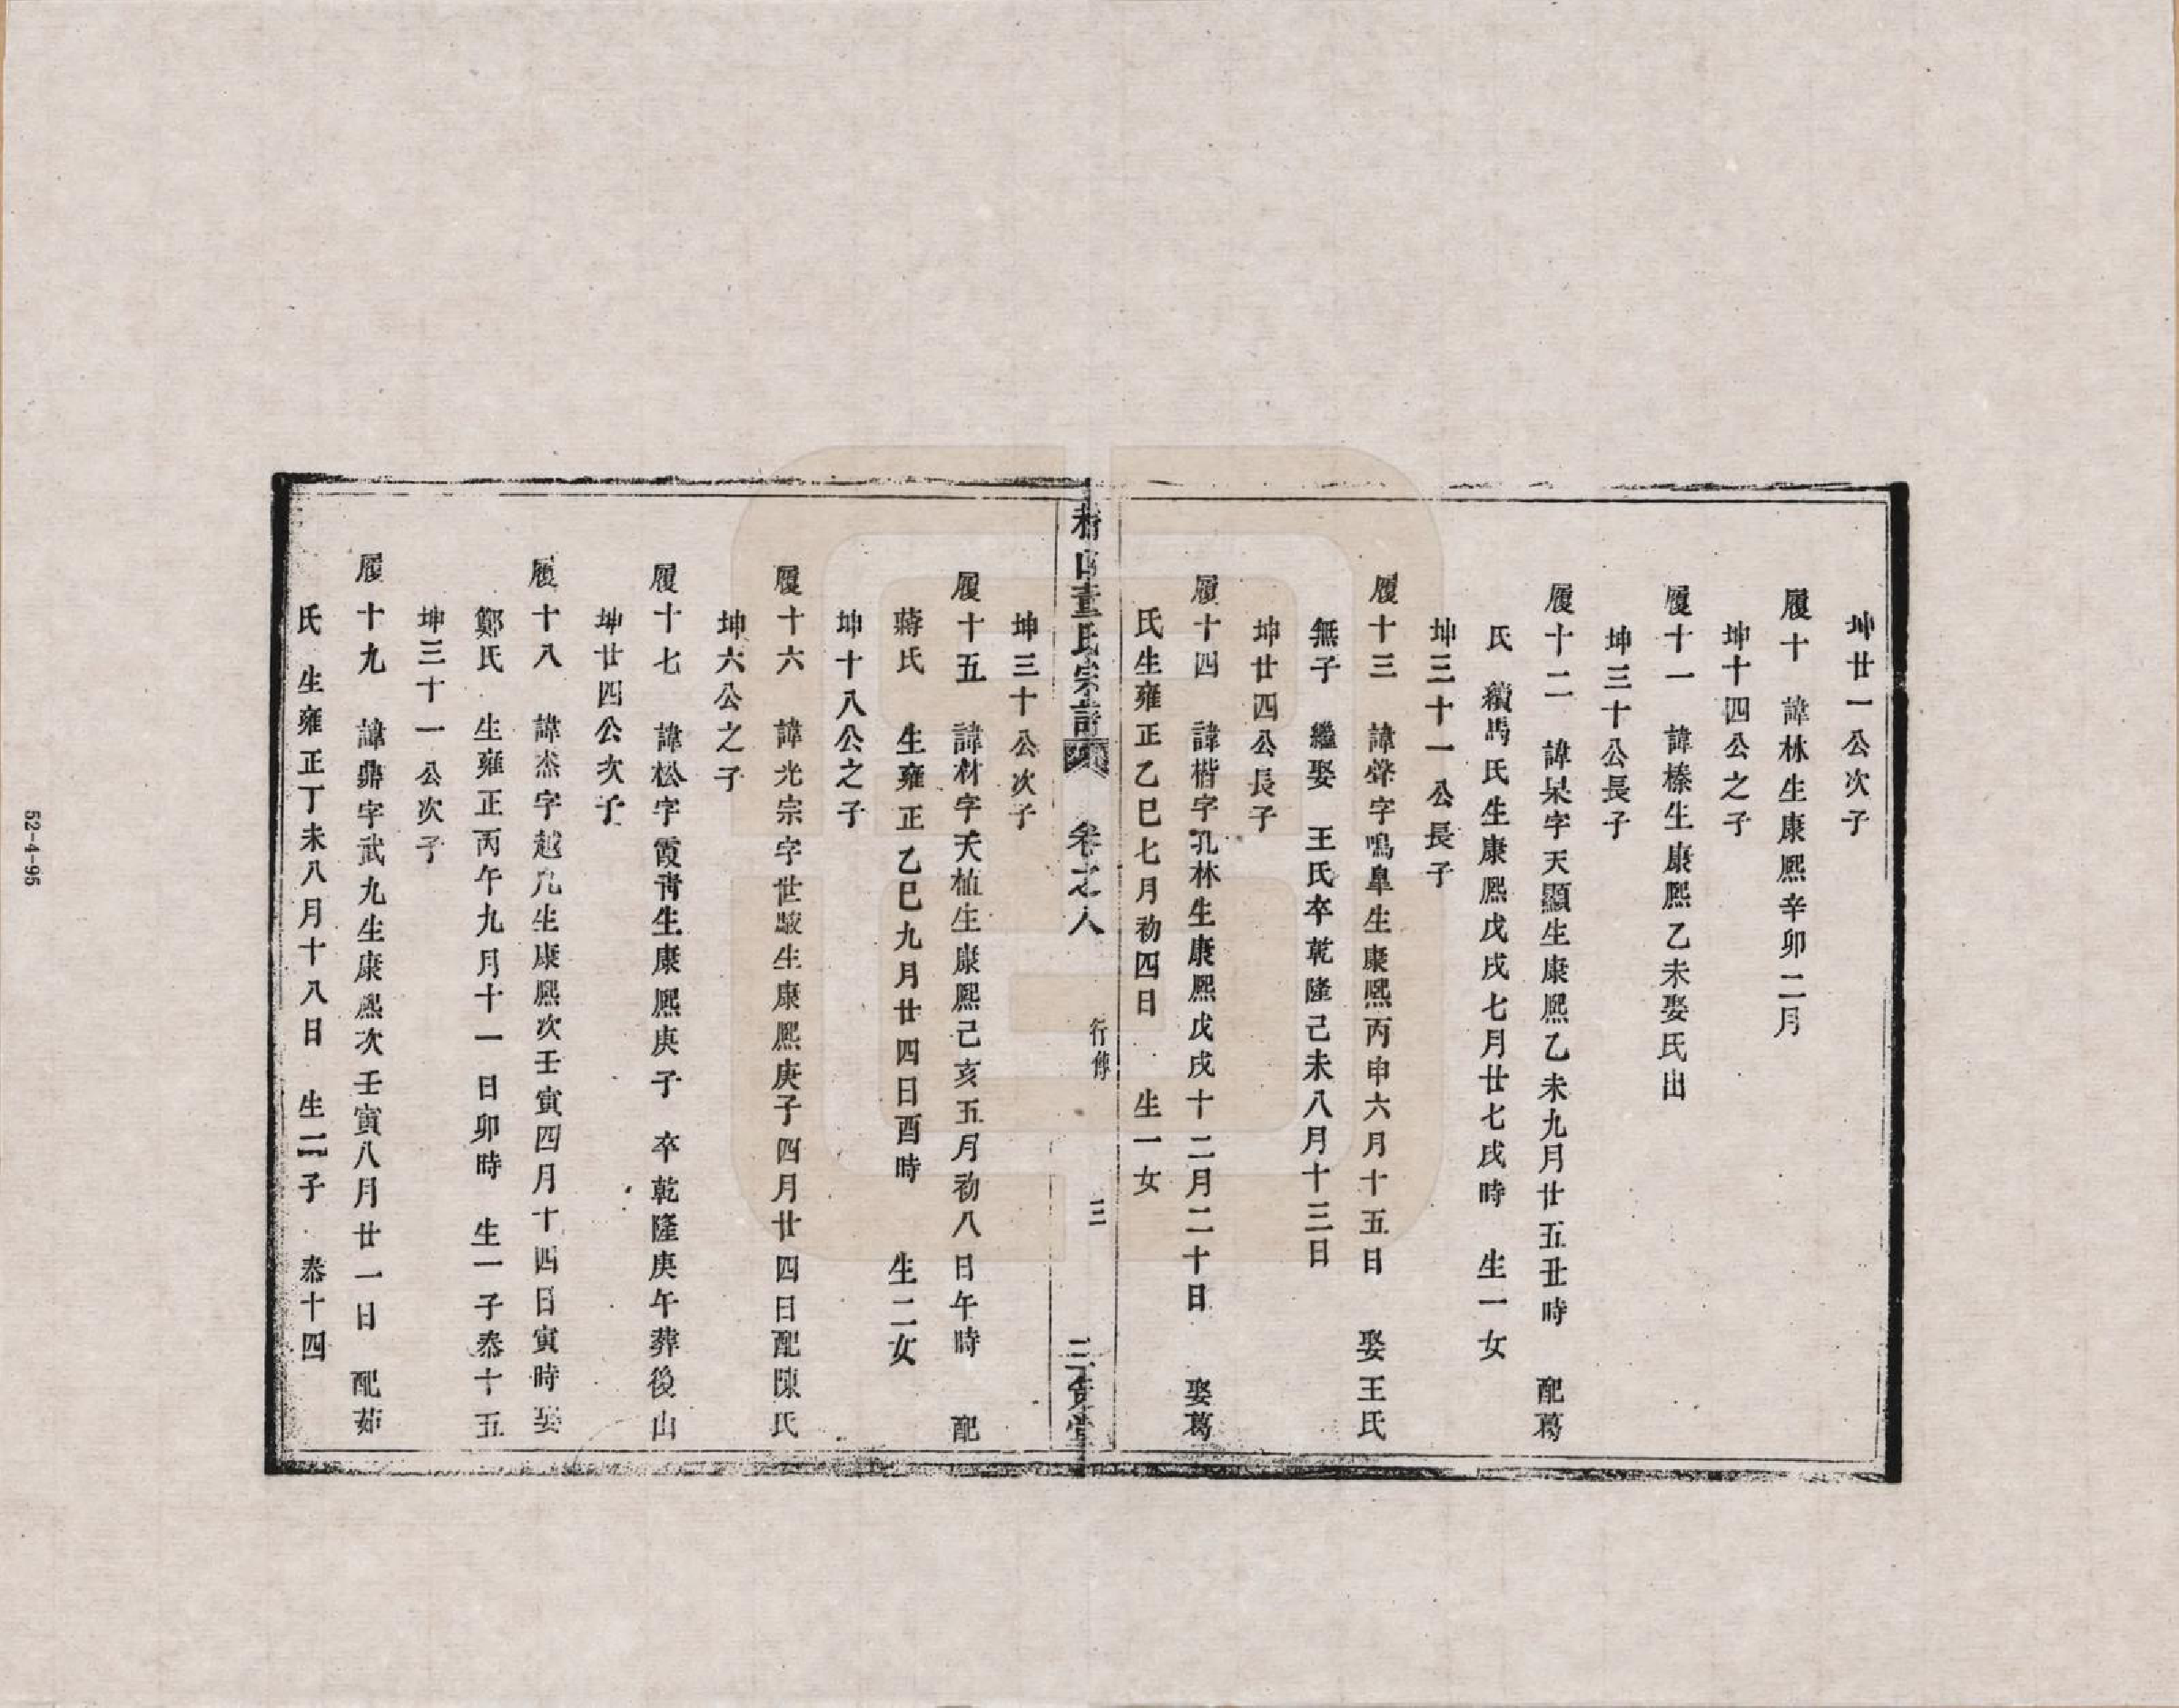 坤廿一公次子
履十 諱林生康熙辛卯二月
坤十四公之子
履十一 諱榛生康熙乙未娶氏出
坤三十公長子
履十二 諱杲字天顯生康熙乙未九月廿五丑時 配葛
氏 續馬氏生康熙戊戌七月廿七戌時 生一女
坤三十一公長子
履十三 諱聲字鳴臯生康熙丙申六月十五日 娶王氏
無子 繼娶 王氏卒乾隆己未八月十三日
坤廿四公長子
履十四 諱楷字孔林生康熙戊戌十二月二十日 娶葛
氏生雍正乙巳七月初四日 生一女
山董氏宗譜 卷之八 行傳 三
坤三十公次子
履十五 諱材字天植生康熙己亥五月初八日午時 配
蔣氏 生雍正乙巳九月廿四日酉時 生二女
坤十八公之子
履十六 諱光宗字世嚴生康熙庚子四月廿四日配陳氏
坤六公之子
履十七 諱松字霞青生康熙庚子 卒乾隆庚午葬後山
坤廿四公次子
履十八 諱杰字越凡生康熙次壬寅四月十四日寅時娶
鄭氏 生雍正丙午九月十一日卯時 生一子泰十五
坤三十一公次子
履十九 諱鼎字武九生康熙次壬寅八月廿一日 配茹
氏 生雍正丁未八月十八日 生二子 泰十四
52-4-95